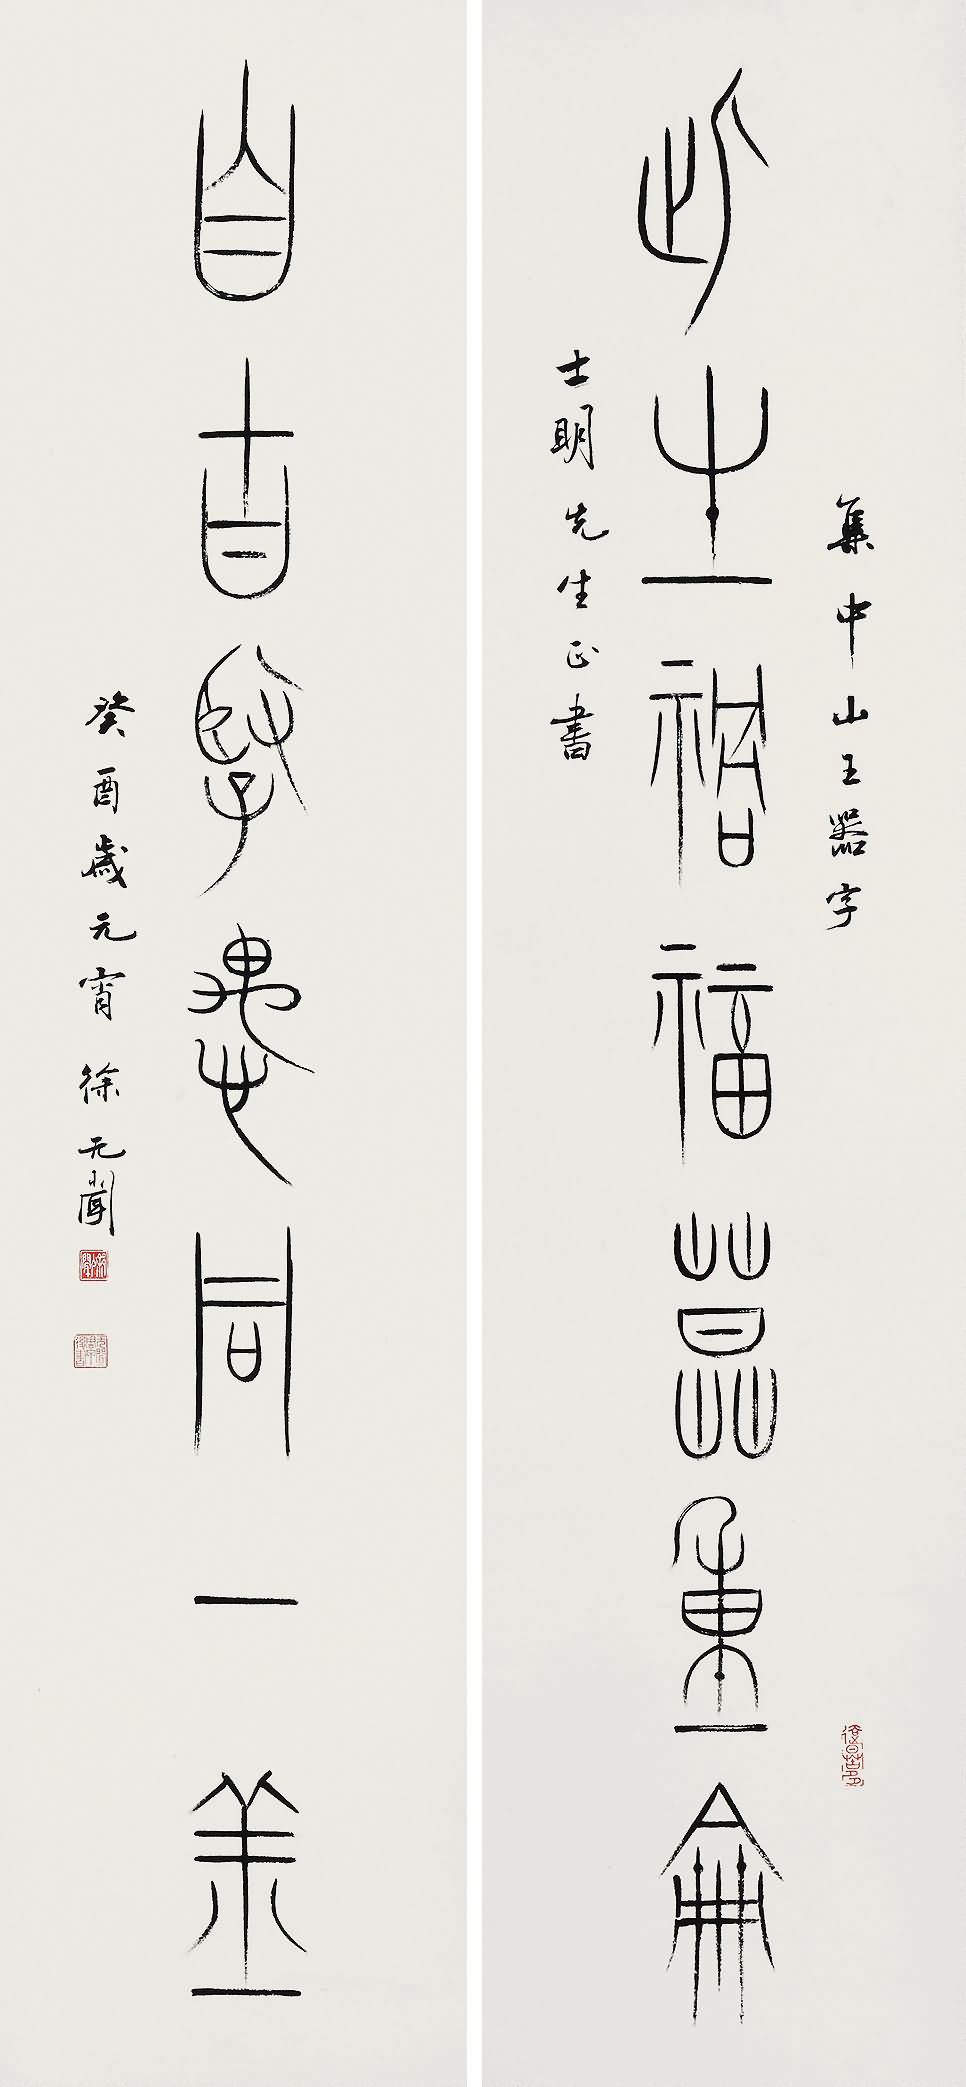 集中山王器字
此生禍福莫重侖
士明先生正書
自古賢愚同一
癸酉歲元宵 徐无聞